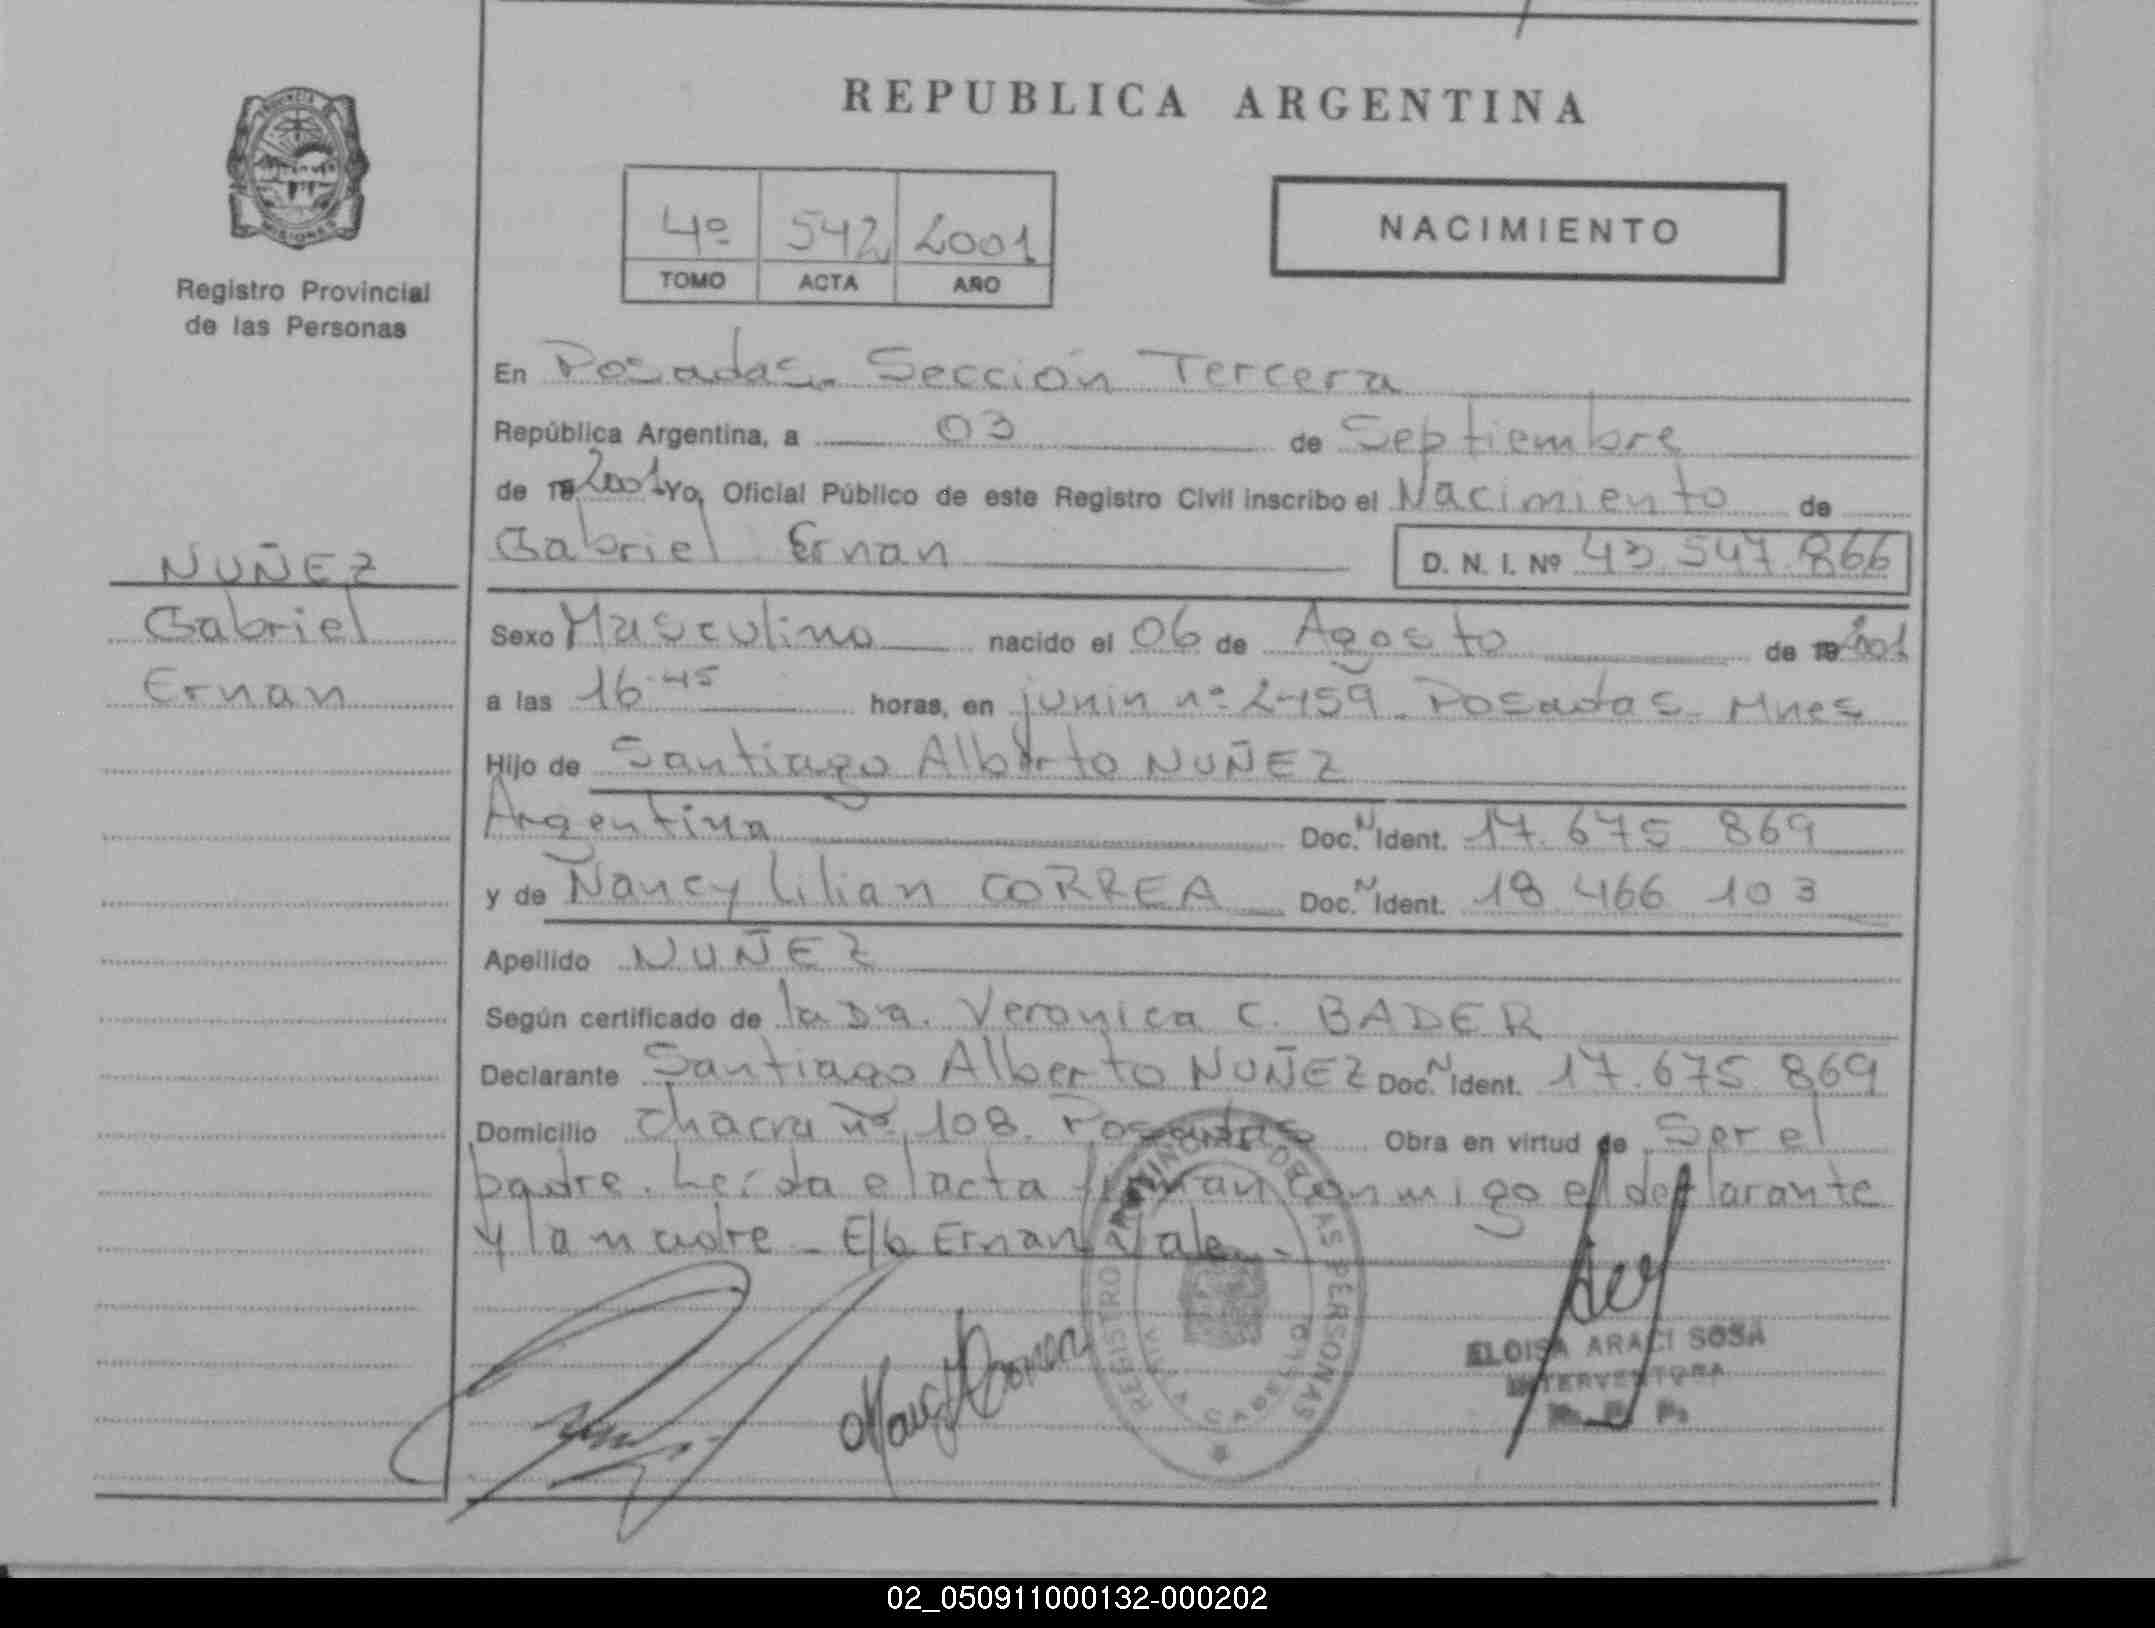 REPUBLICA ARGENTINA
4º 542 2001
TOMO ACTA AÑO
NACIMIENTO
Registro Provincial
de las Personas
En Posadas. Sección Tercera
República Argentina, a 03 de Septiembre
de 19 2001 Yo, Oficial Público de este Registro Civil inscribo el Nacimiento de
Gabriel Ernan D. N. I. Nº 43.547.866
NUÑEZ
Gabriel
Ernan
Sexo Masculino nacido el 06 de Agosto de 19 2001
a las 16.45 horas, en junin nº 2459. Posadas. Mnes
Hijo de Santiago Alberto NUÑEZ
Argentina Doc. N Ident. 17.675 869
y de Nancy Lilian CORREA Doc. N Ident. 18 466 103
Apellido NUÑEZ
Según certificado de la Dra. Veronica C. BADER
Declarante Santiago Alberto NUÑEZ Doc. N Ident. 17.675.869
Domicilio Chacra nº 108. Posadas Obra en virtud de Ser el
padre. Leída el acta firman conmigo el declarante
y la madre - E/b Ernan Vale.
REGISTRO PROVINCIAL DE LAS PERSONAS
VILLA CABELLO
ELOISA ARACI SOSA
INTERVENTORA
R. P. P.
02_050911000132-000202